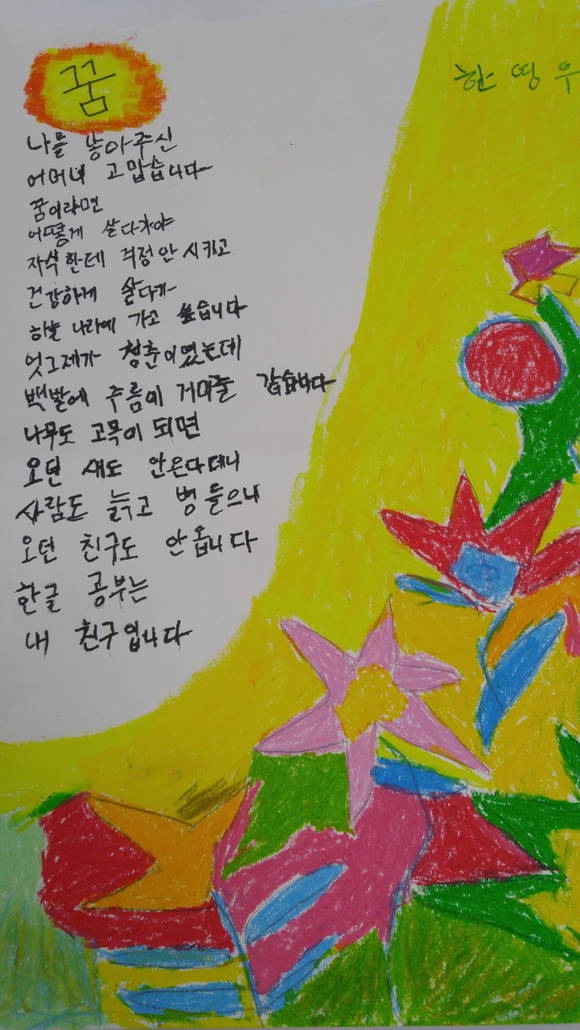 꿈
한영우
나를 놓아주신
어머니 고맙습니다
꿈이라면
어떻게 살다가야
자식한테 걱정안시키고
건강하게 살다가
하늘 나라에 가고 싶습니다
엇그제가 청춘이였는데
백발에 주름이 거미줄 갑습니다
나무도 고목이 되면
오던 새도 안온다데니
사람도 늙고 병들으니
오던 친구도 안옵니다
한글 공부는
내 친구입니다